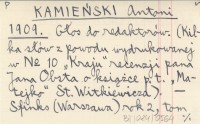 P
KAMIEŃSKI Antoni
1909. Głos do redaktorów. (Kil-
ka słów z powodu wydrukowanej
w № 10 „Kraju" recenzji pana
Jana Obsta o książce p.t. „Ma-
tejko" St. Witkiewicza). –
Sfinks (Warszawa) rok 2, tom